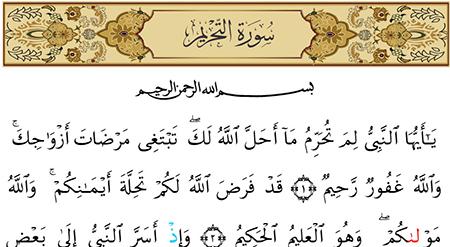 سُورَةُ التَّحْرِيمِ
بِسْمِ اللَّهِ الرَّحْمَٰنِ الرَّحِيمِ
يَـٰٓأَيُّهَا ٱلنَّبِىُّ لِمَ تُحَرِّمُ مَآ أَحَلَّ ٱللَّهُ لَكَ ۖ تَبْتَغِى مَرْضَاتَ أَزْوَٰجِكَ ۚ
وَٱللَّهُ غَفُورٌ رَّحِيمٌ ﴿١﴾ قَدْ فَرَضَ ٱللَّهُ لَكُمْ تَحِلَّةَ أَيْمَـٰنِكُمْ ۚ وَٱللَّهُ
مَوْلَىٰكُمْ ۖ وَهُوَ ٱلْعَلِيمُ ٱلْحَكِيمُ ﴿٢﴾ وَإِذْ أَسَرَّ ٱلنَّبِىُّ إِلَىٰ بَعْضِ